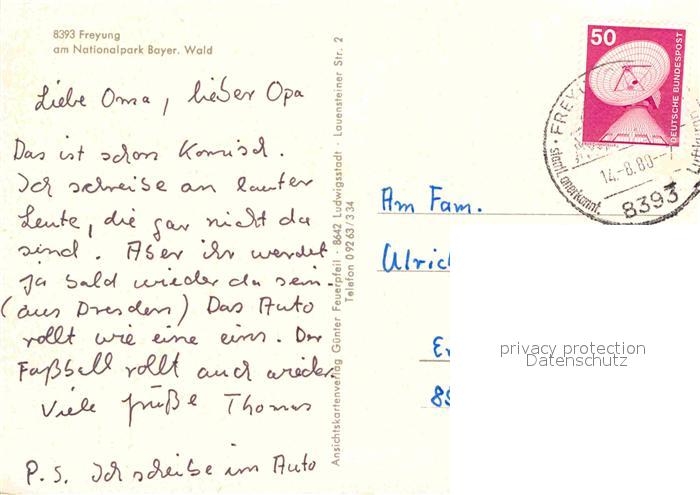 8393 Freyung
am Nationalpark Bayer. Wald
Liebe Oma, lieber Opa
Das ist schon Komisch.
Ich schreibe an lauter
Leute, die gar nicht da
sind. Aber ihr werdet
ja bald wieder da sein.
(aus Dresden) Das Auto
rollt wie eine eins. Der
Fußball rollt auch wieder.
Viele Grüße Thomas
P.S. Ich schreibe im Auto
Ansichtskartenverlag Günter Feuerpfeil · 8642 Ludwigsstadt · Lauensteiner Str. 2
Telefon 0 92 63 / 3 34
50
DEUTSCHE BUNDESPOST
14.-8.80-
8393
Am Fam.
Ulric
privacy protection
Datenschutz